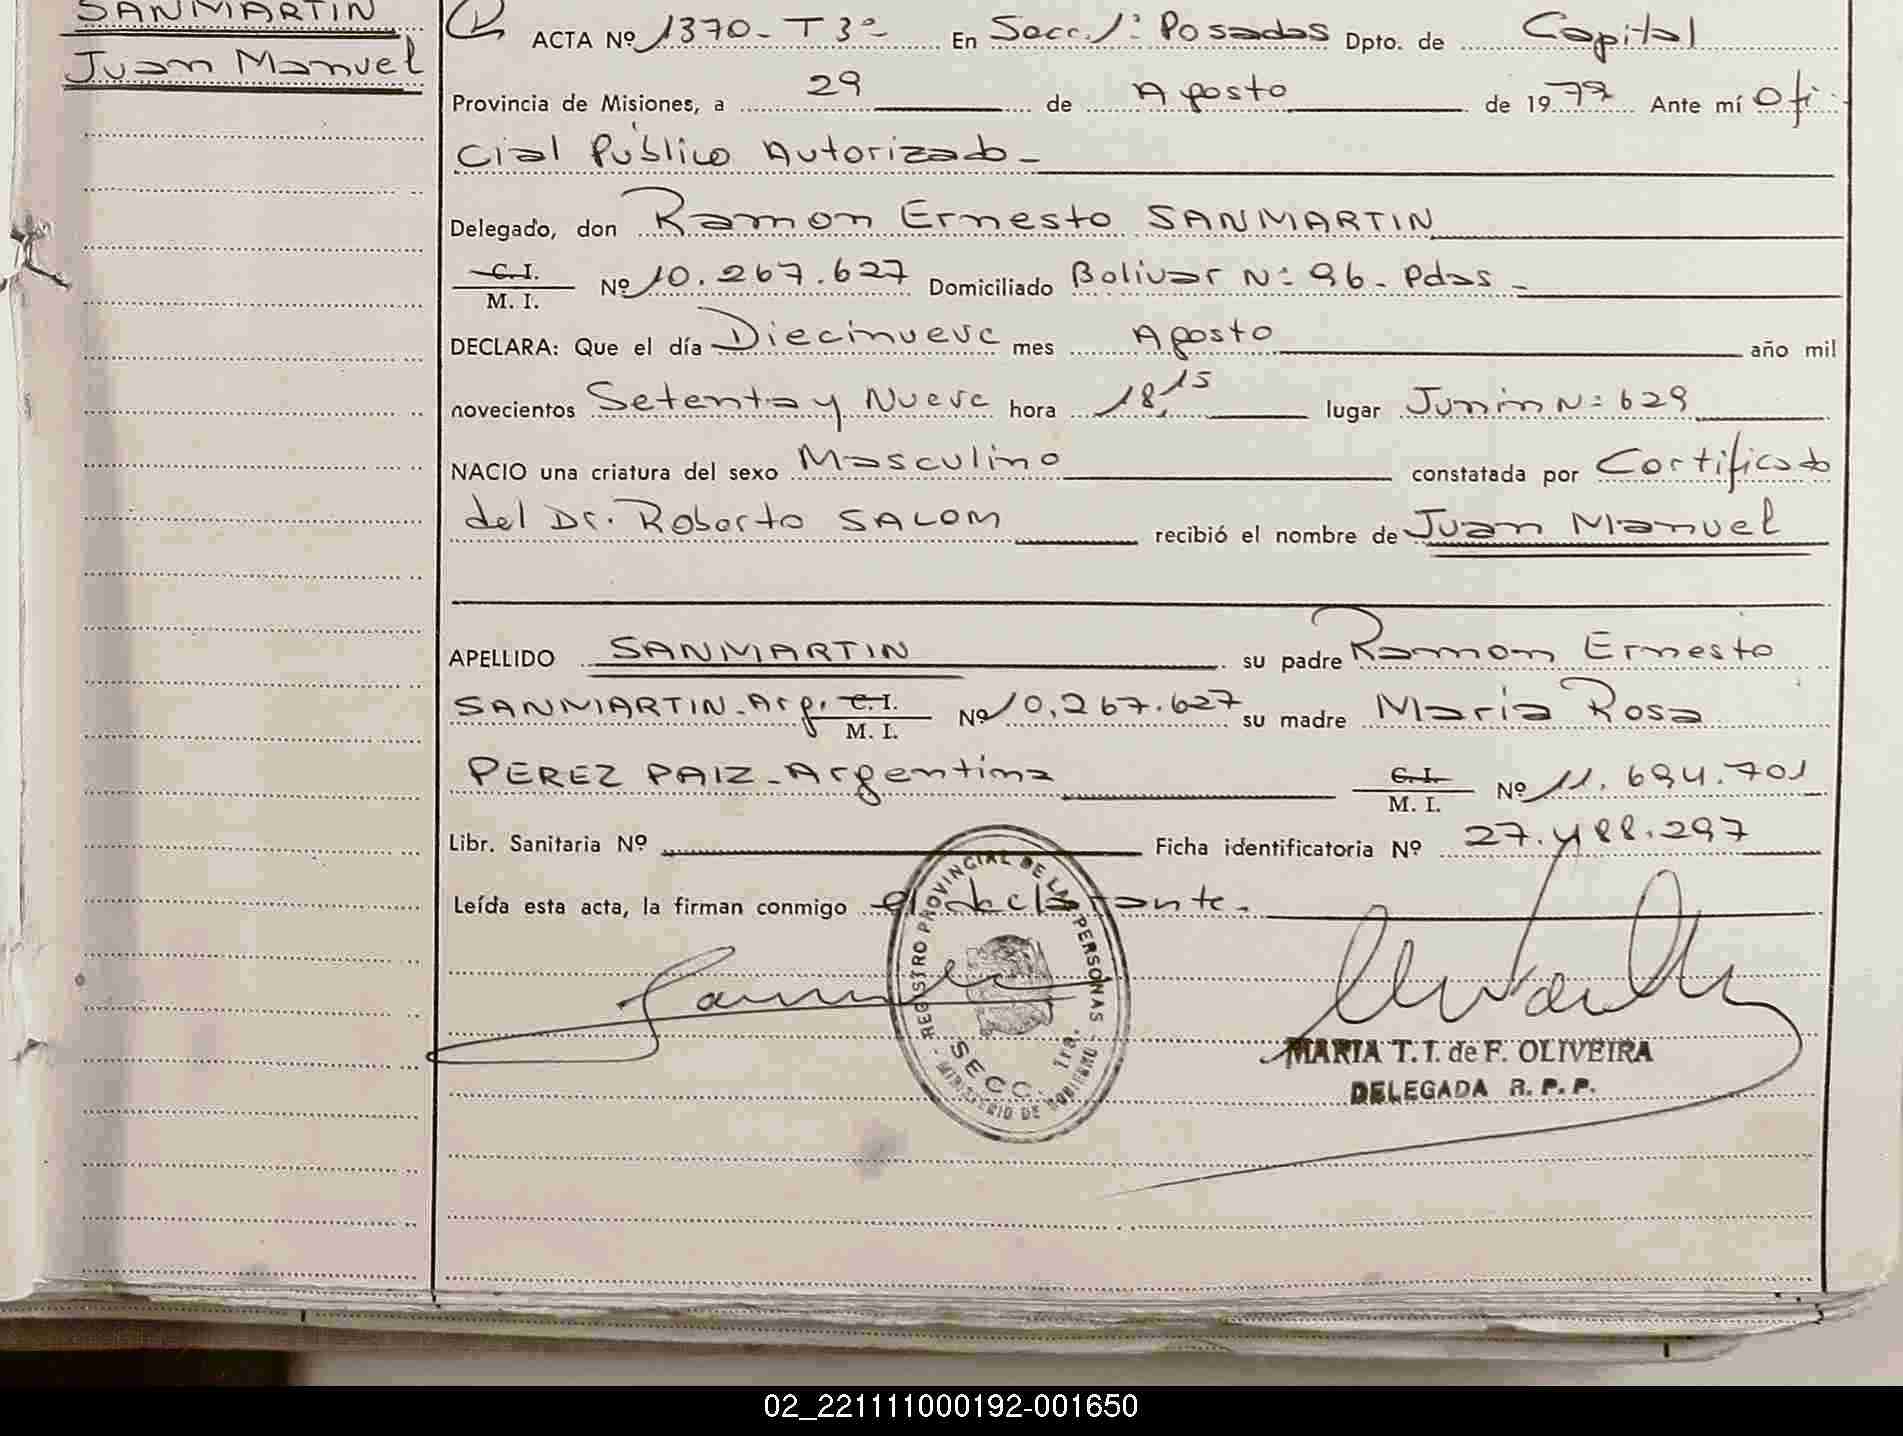 SANMARTIN
Juan Manuel
ACTA Nº 1370- T3º En Secc. 1ª Posadas Dpto. de Capital
Provincia de Misiones, a 29 de Agosto de 1979 Ante mí Ofi-
cial Público Autorizado-
Delegado, don Ramon Ernesto SANMARTIN
C.I. / M. I. Nº 10.267.627 Domiciliado Bolivar Nº 96- Pdas -
DECLARA: Que el día Diecinueve mes Agosto año mil
novecientos Setenta y Nueve hora 18,15 lugar Junin Nº 629
NACIO una criatura del sexo Masculino constatada por Certificado
del Dr. Roberto SALOM recibió el nombre de Juan Manuel
APELLIDO SANMARTIN su padre Ramon Ernesto
SANMARTIN-Arg. C.I. / M. I. Nº 10.267.627 su madre Maria Rosa
PEREZ PAIZ-Argentina C.I. / M. I. Nº 11.694.701
Libr. Sanitaria Nº Ficha identificatoria Nº 27.488.297
Leída esta acta, la firman conmigo el declarante.
REGISTRO PROVINCIAL DE LAS PERSONAS
SECC. 1ra.
MINISTERIO DE GOBIERNO
MARIA T. I. de F. OLIVEIRA
DELEGADA R. P. P.
02_221111000192-001650